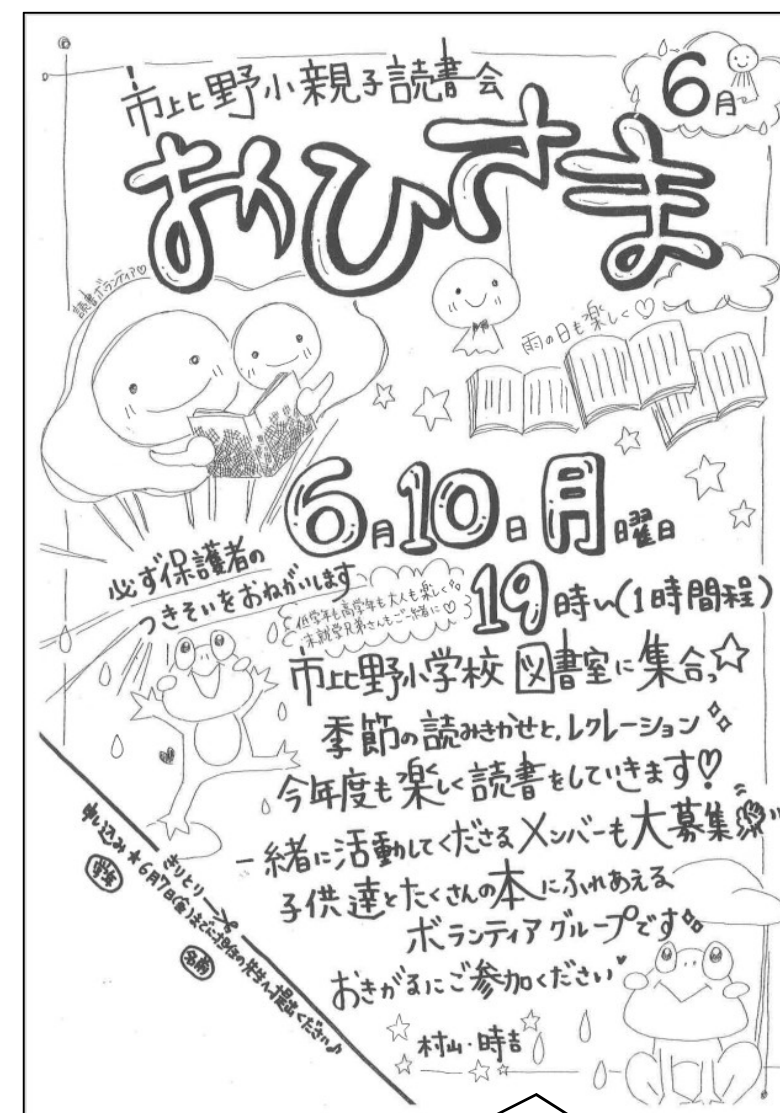 市比野小親子読書会
6月
おひさま
読書ボランティア♡
雨の日も楽しく♡
6月10日月曜日
必ず保護者の
つきそいをおねがいします
低学年も高学年も大人も楽しく
未就学兄弟さんもご一緒に♡
19時〜(1時間程)
市比野小学校 図書室に集合っ☆
季節の読みきかせと、レクレーション
今年度も楽しく読書をしていきます♡
一緒に活動してくださるメンバーも大募集
子供達とたくさんの本にふれあえる
ボランティアグループです
おきがるにご参加ください
村山・時吉
きりとり
申し込み★6月7日(金)までに担任の先生へ提出ください♪
学年
名前